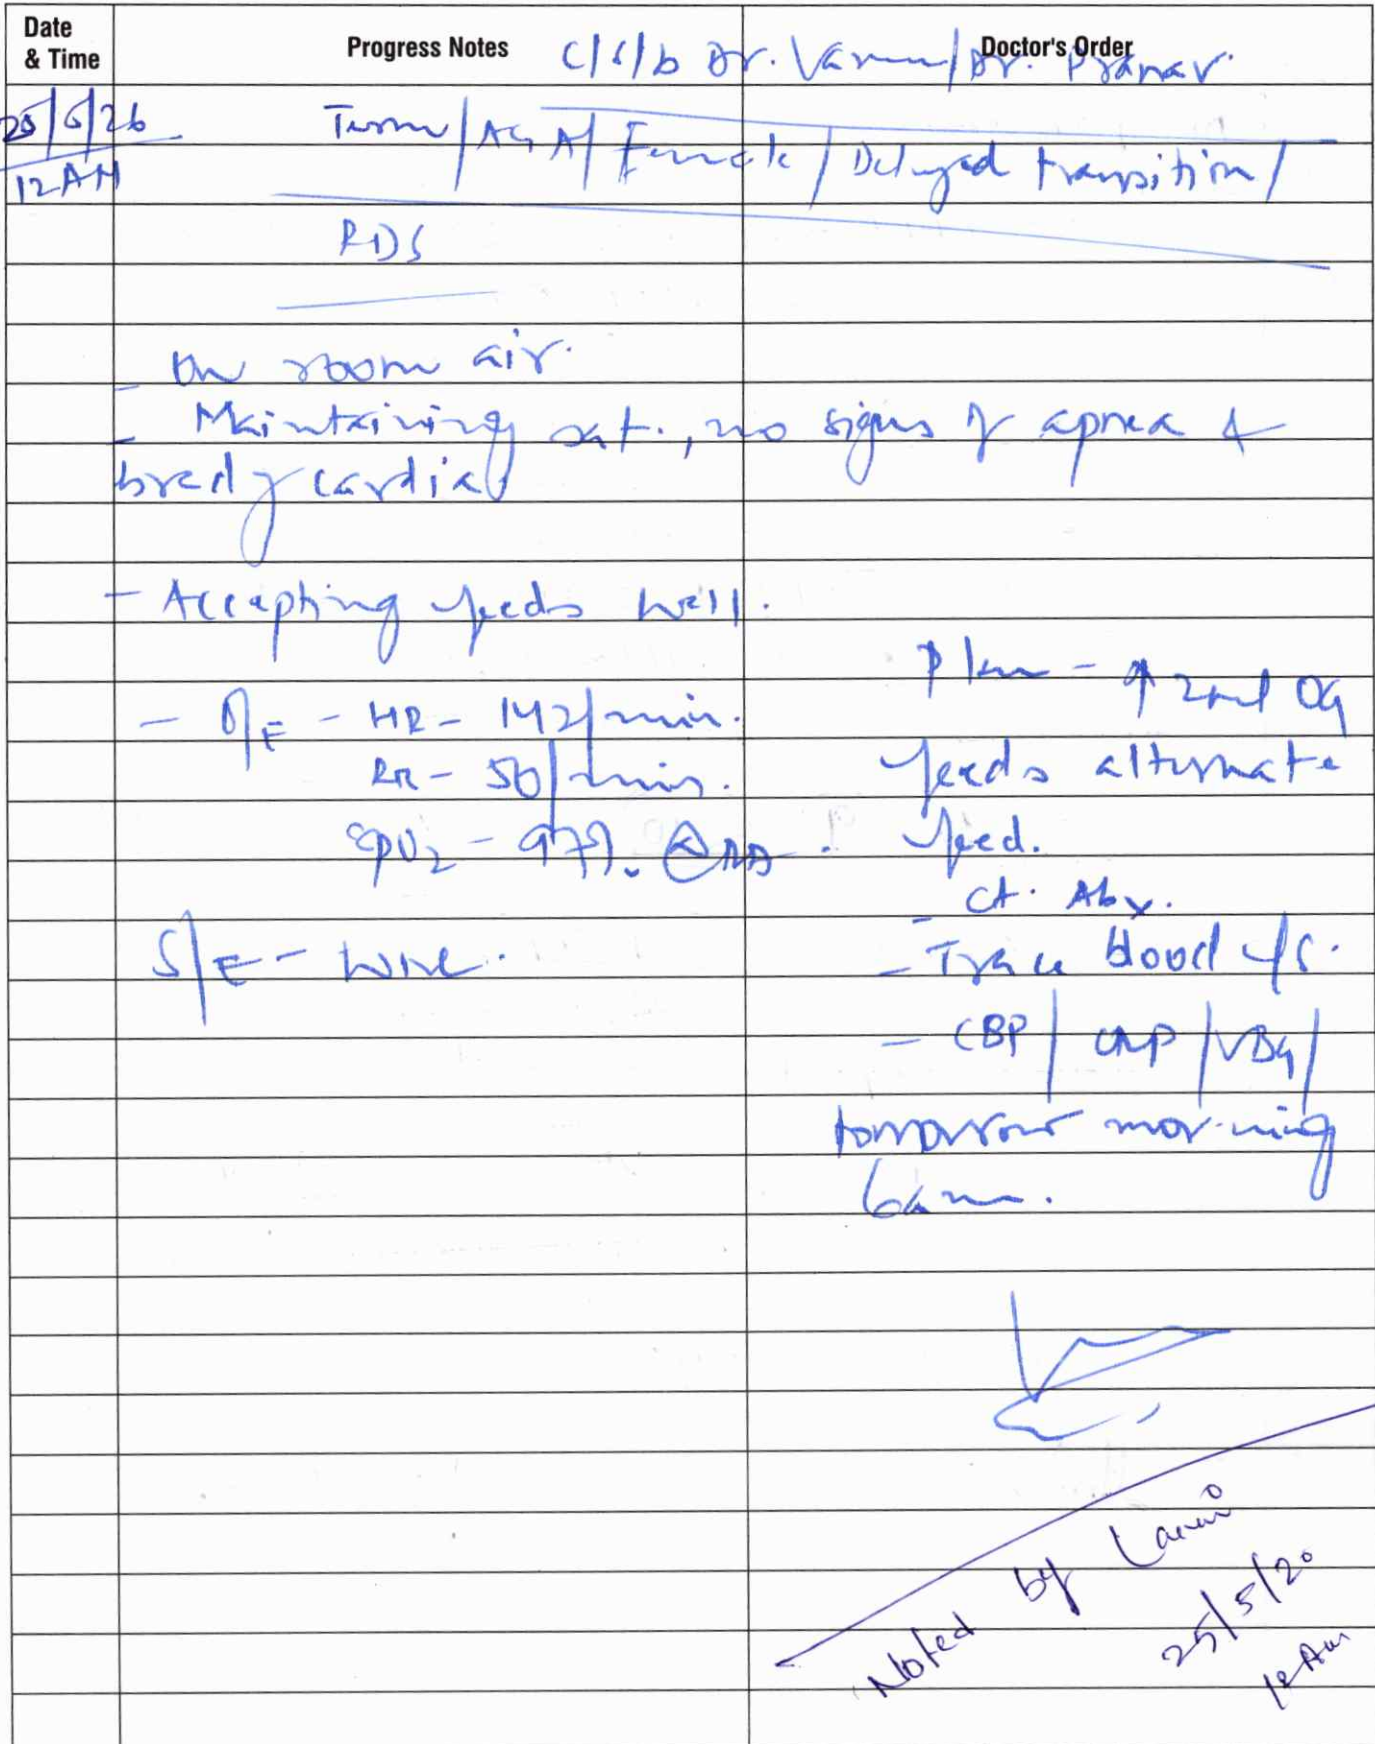 Date & Time
Progress Notes
Doctor's Order
C/S/b Dr. Varun/Dr. Pranav.
25/5/26
12AM
Term/AGA/Female/Delayed transition/
RDS
- On room air.
- Maintaining sat., no signs of apnea &
bradycardia
- Accepting feeds well.
- O/E - HR - 142/min.
RR - 50/min.
SpO2 - 97%. @RA.
S/E - WNL.
Plan - ↑ 2ml OG
feeds alternate
feed.
- Ct. Abx.
- Trace blood c/s.
- CBP/CRP/VBG/
tomorrow morning
6am.
Noted by
25/5/20
12Am